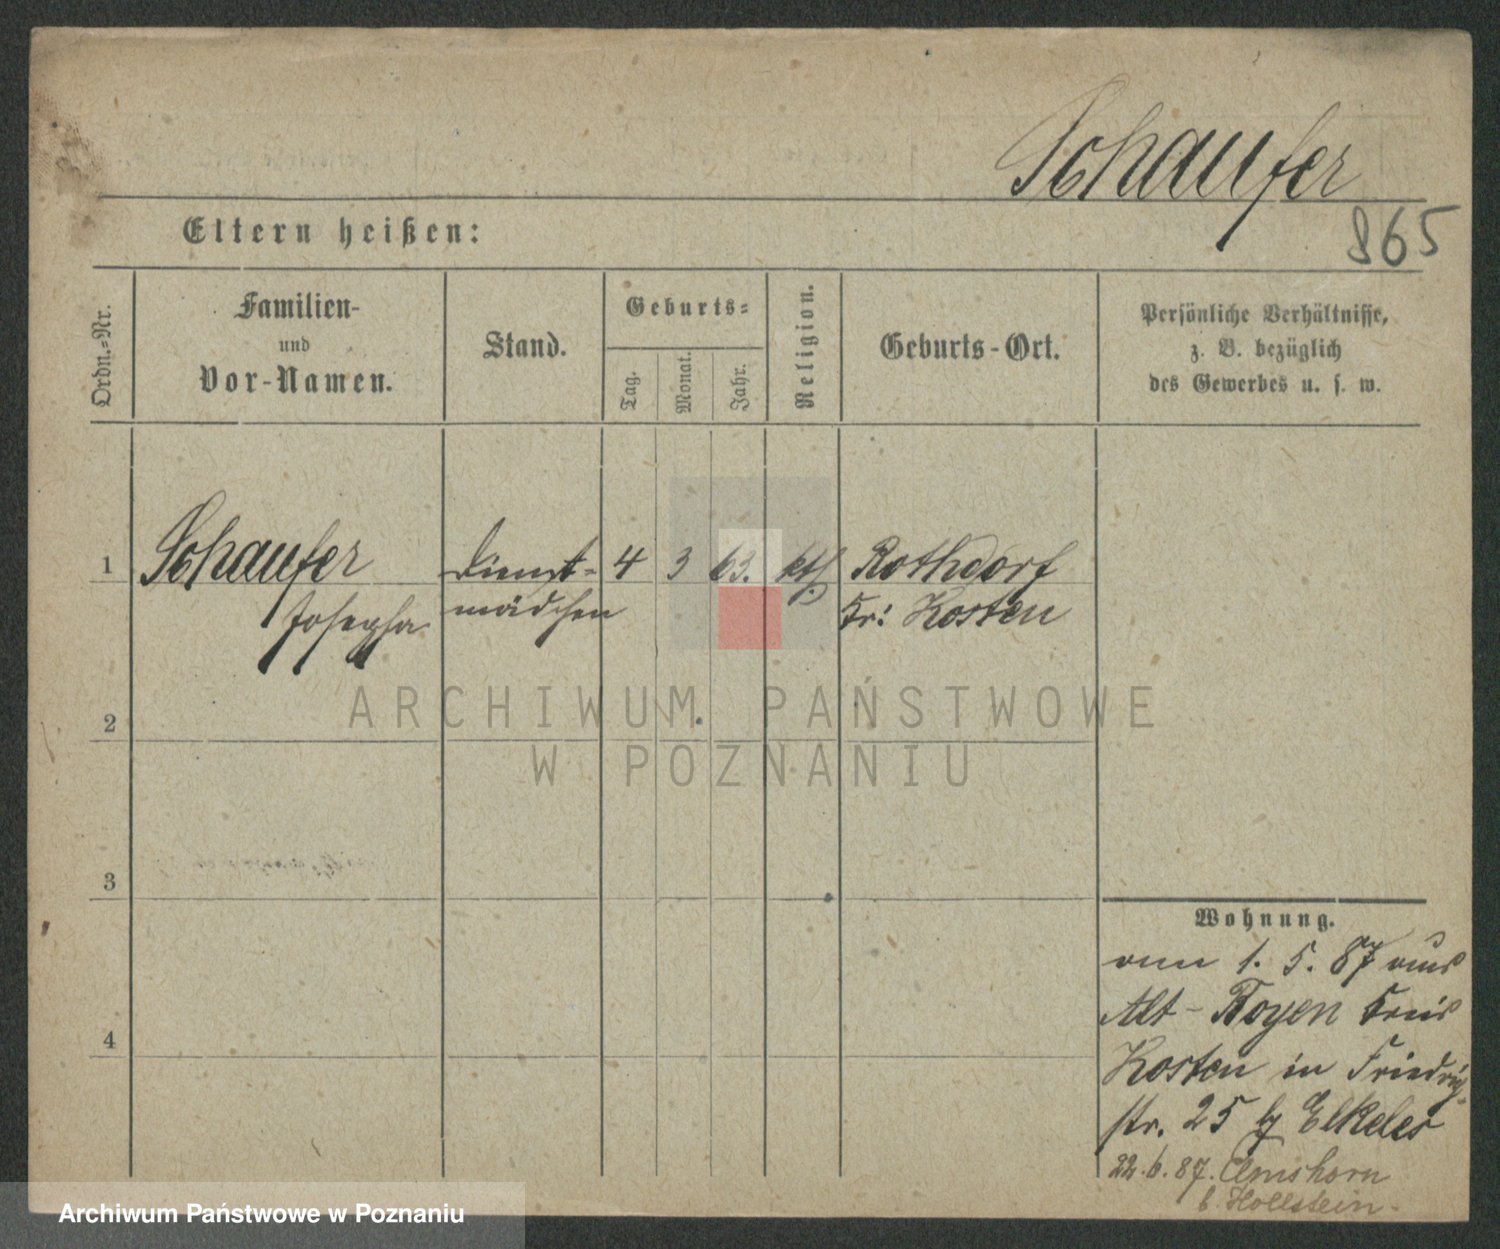 Schaufer
865
Eltern heißen:
Ordn.-Nr.
Familien-
und
Vor-Namen.
Stand.
Geburts-
Tag.
Monat.
Jahr.
Religion.
Geburts-Ort.
Persönliche Verhältnisse,
z. B. bezüglich
des Gewerbes u. s. w.
1
Schaufer
Josepha
Dienst-
mädchen
4
3
63.
kth.
Rothdorf
Kr: Kosten
ARCHIWUM PAŃSTWOWE
W POZNANIU
2
3
4
Wohnung.
1. 5. 87 aus
Alt-Boyen Kreis
Kosten in Friedrich-
str. 25 b/ Elkeles
22.6.87. Elmshorn
b. Hollstein.
Archiwum Państwowe w Poznaniu